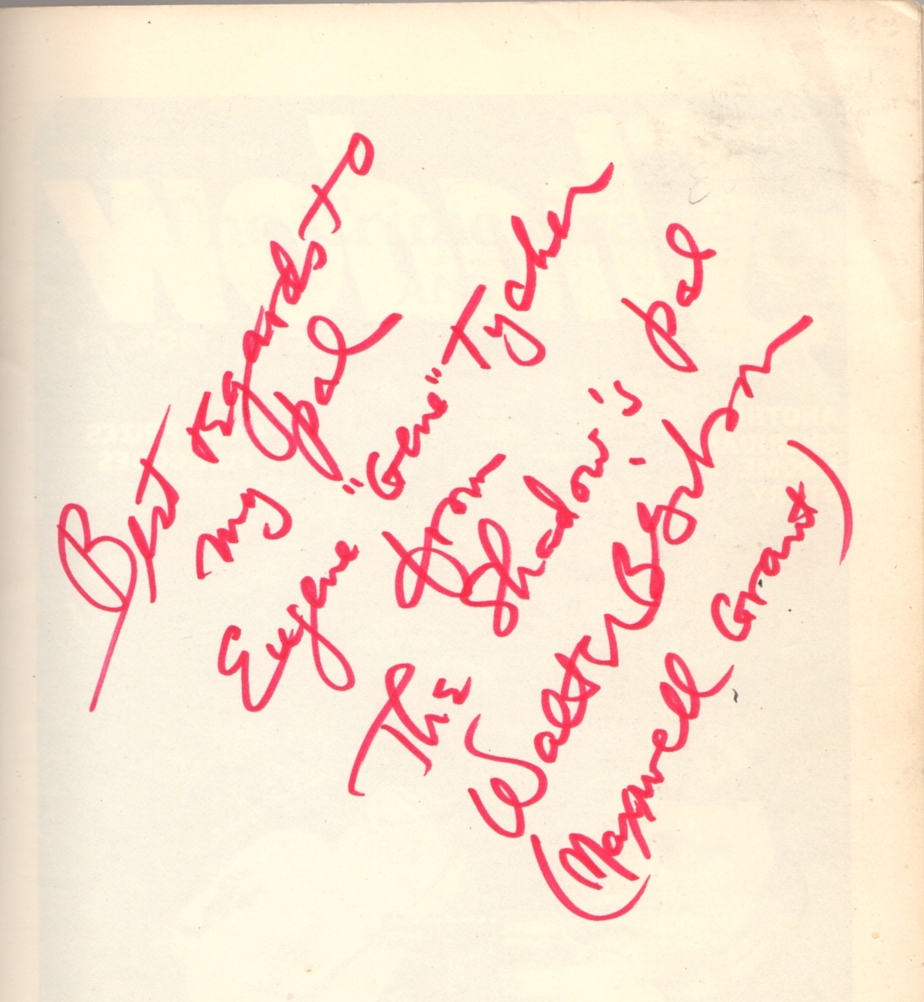 Best Regards to
my pal
Eugene "Gene" Tycher
from
The Shadow's pal
Walter B. Gibson
(Maxwell Grant)